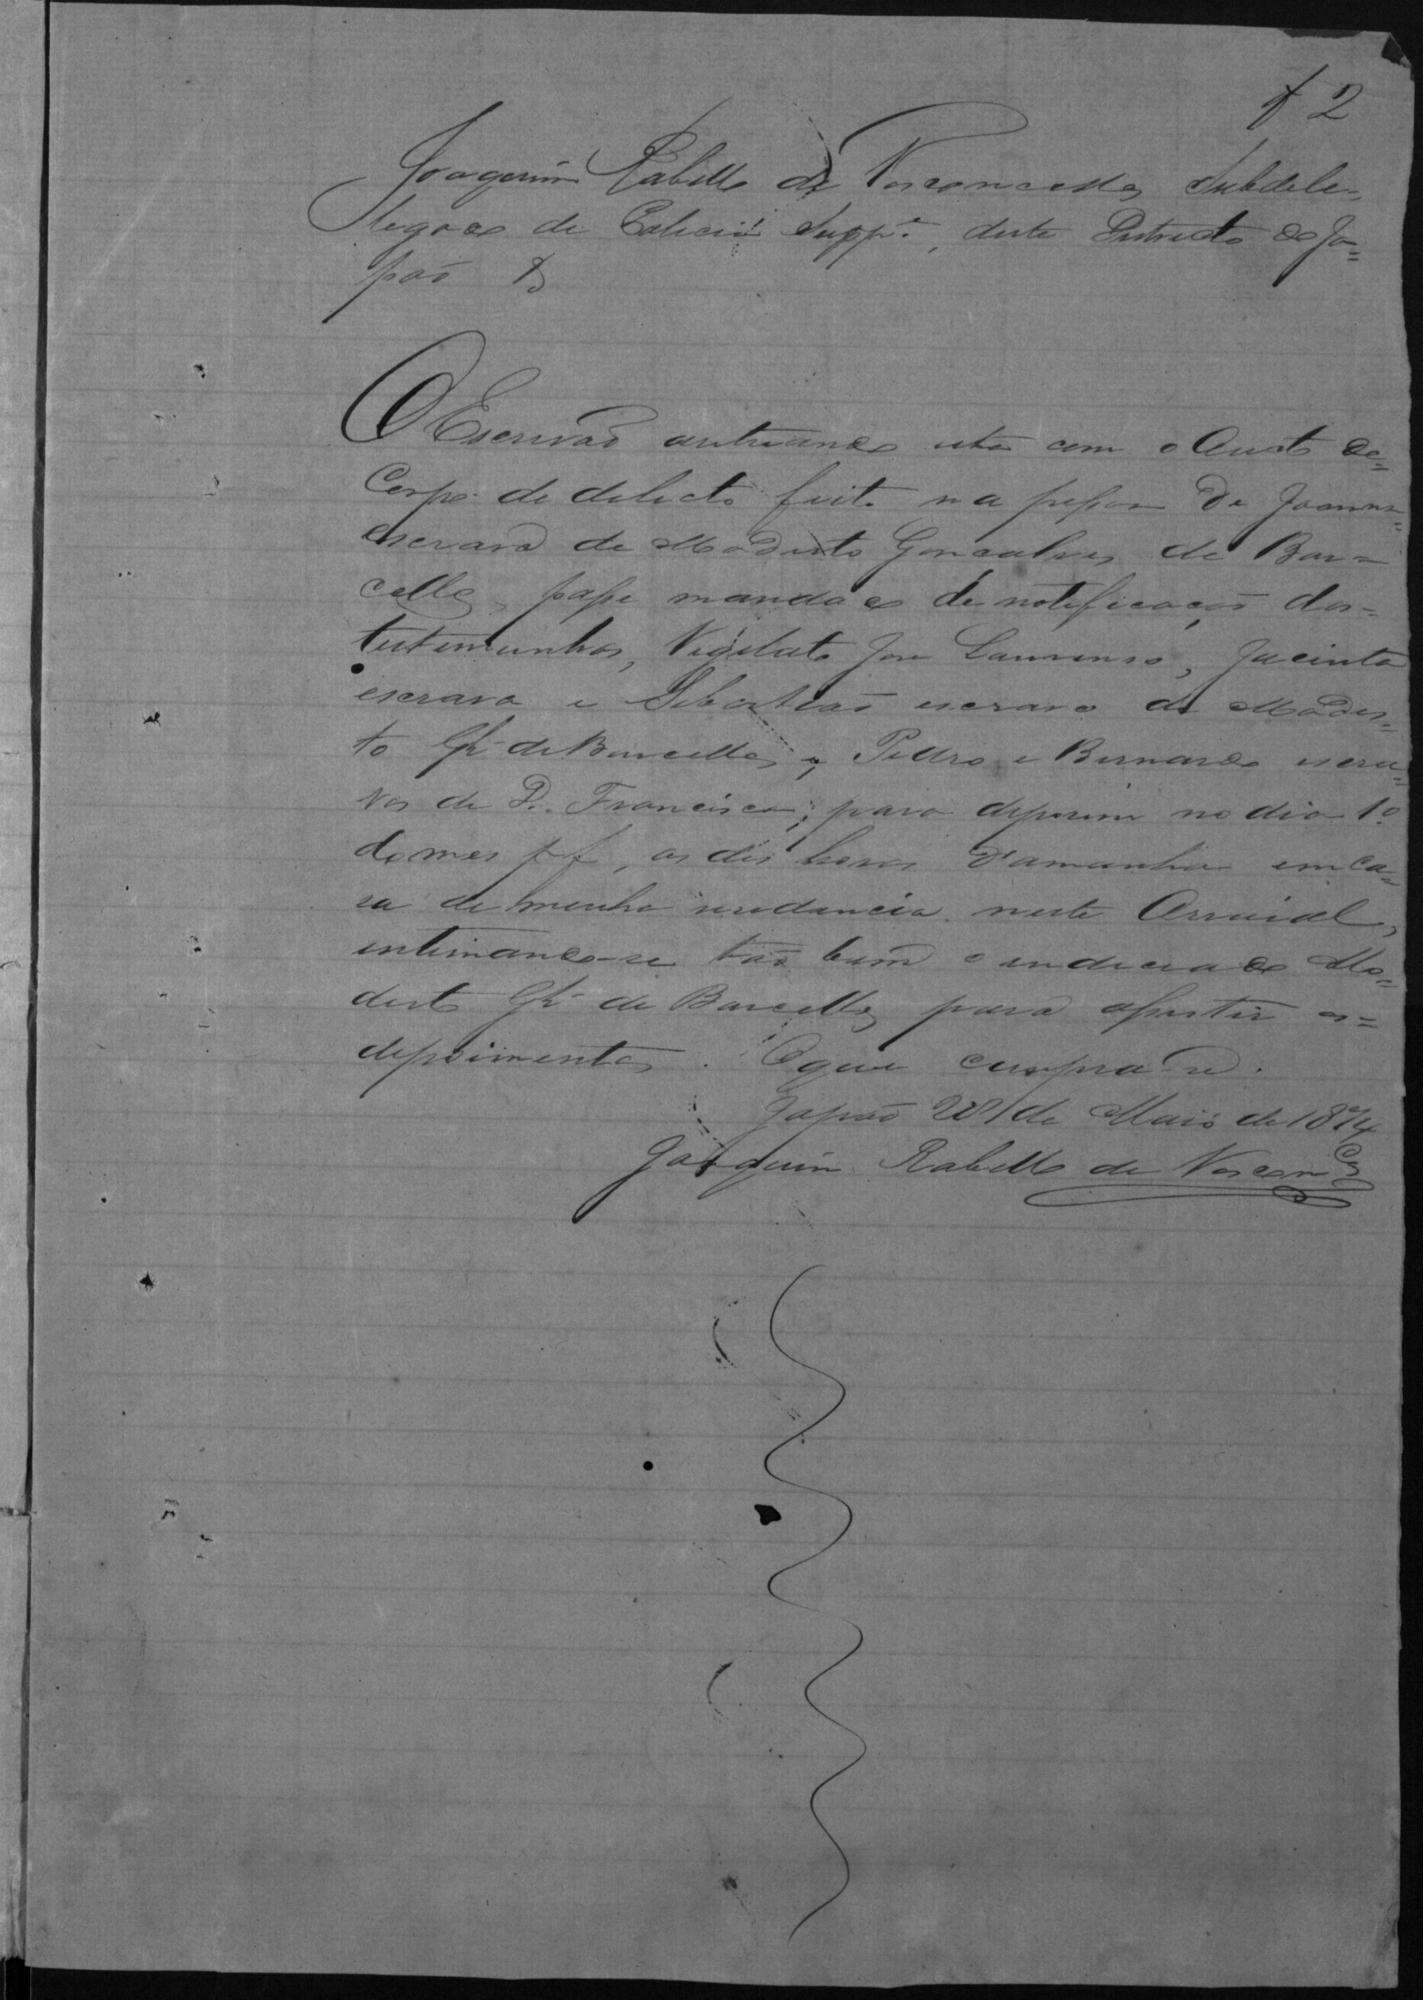 f 2
Joaquim Rabello de Vasconcellos Subdele-
legado de Policia Supp.e, deste Districto do Ja=
pão &
O Escrivão autuando esta com o Auto de=
Corpo de delicto feito na pessoa de Joanna=
escrava de Modesto Gonçalves de Bar=
cellos, passe mandado de notificação das=
testimunhas, Vigilato José Lourenso, Jacinta
escrava e Sebastião escravo de Modes=
to Glz de Barcellos, e Pedro e Bernardo escra=
vos de D. Francisca; para deporem no dia 1º
do mes p f, as des horas d'amanha em ca=
sa de minha residancia neste Arraial,
intimando-se tão bem o indiciado Mo=
desto Glz de Barcellos para assistir os=
depoimentos. O que cumpra-se.
Japão de Maio de 1874
Joaquim Rabello de Vascon.cos